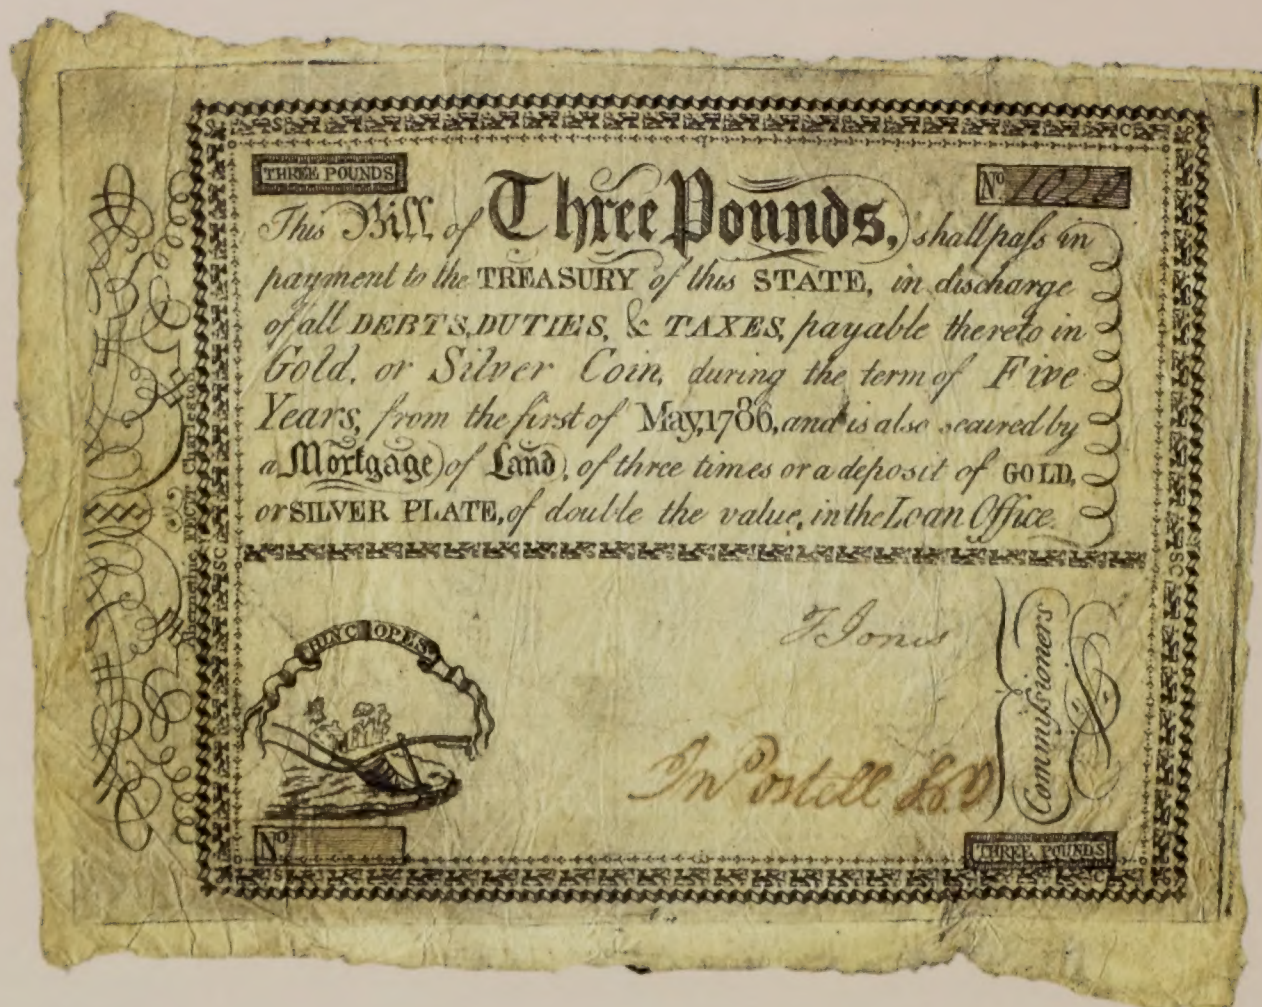 THREE POUNDS
No
This Bill of Three Pounds, shall pass in
payment to the TREASURY of this STATE, in discharge
of all DEBTS, DUTIES, & TAXES, payable thereto in
Gold, or Silver Coin, during the term of Five
Years, from the first of May, 1786, and is also secured by
a Mortgage of Land, of three times or a deposit of GOLD,
or SILVER PLATE, of double the value, in the Loan Office.
HINC OPES
T Jones
Jn Postell
Commissioners
No
THREE POUNDS
FECT Charleston
SC
SC